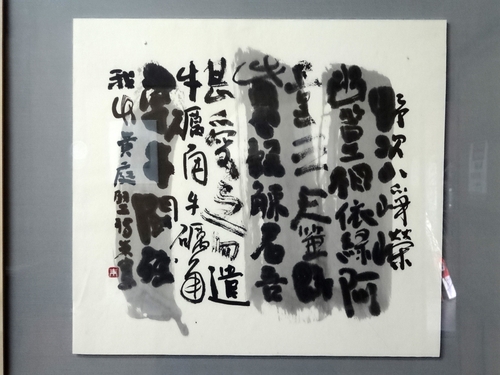 野次小崢嶸
幽篁相依綠阿
童三尺箠御
此老觳觫石吾
甚愛之勿遣
牛礪角牛礪角
尚可牛鬥殘
我竹黃庭堅詩